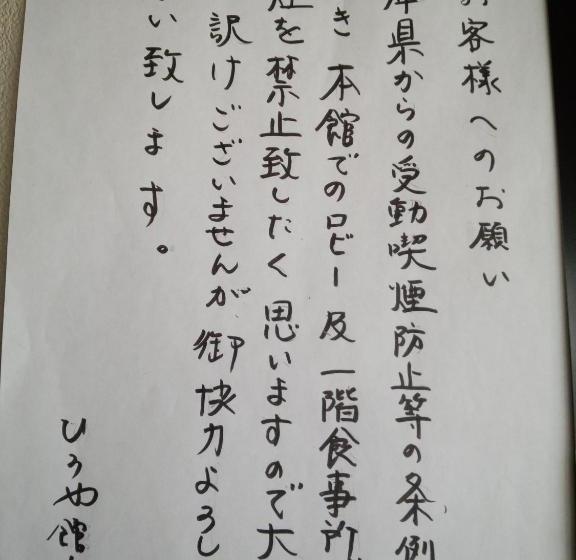 お客様へのお願い
庫県からの受動喫煙防止等の条例
き 本館でのロビー 及 一階食事所
煙を禁止致したく 思いますので大
訳けございませんが 御协力よろし
い致します。
ひろや館